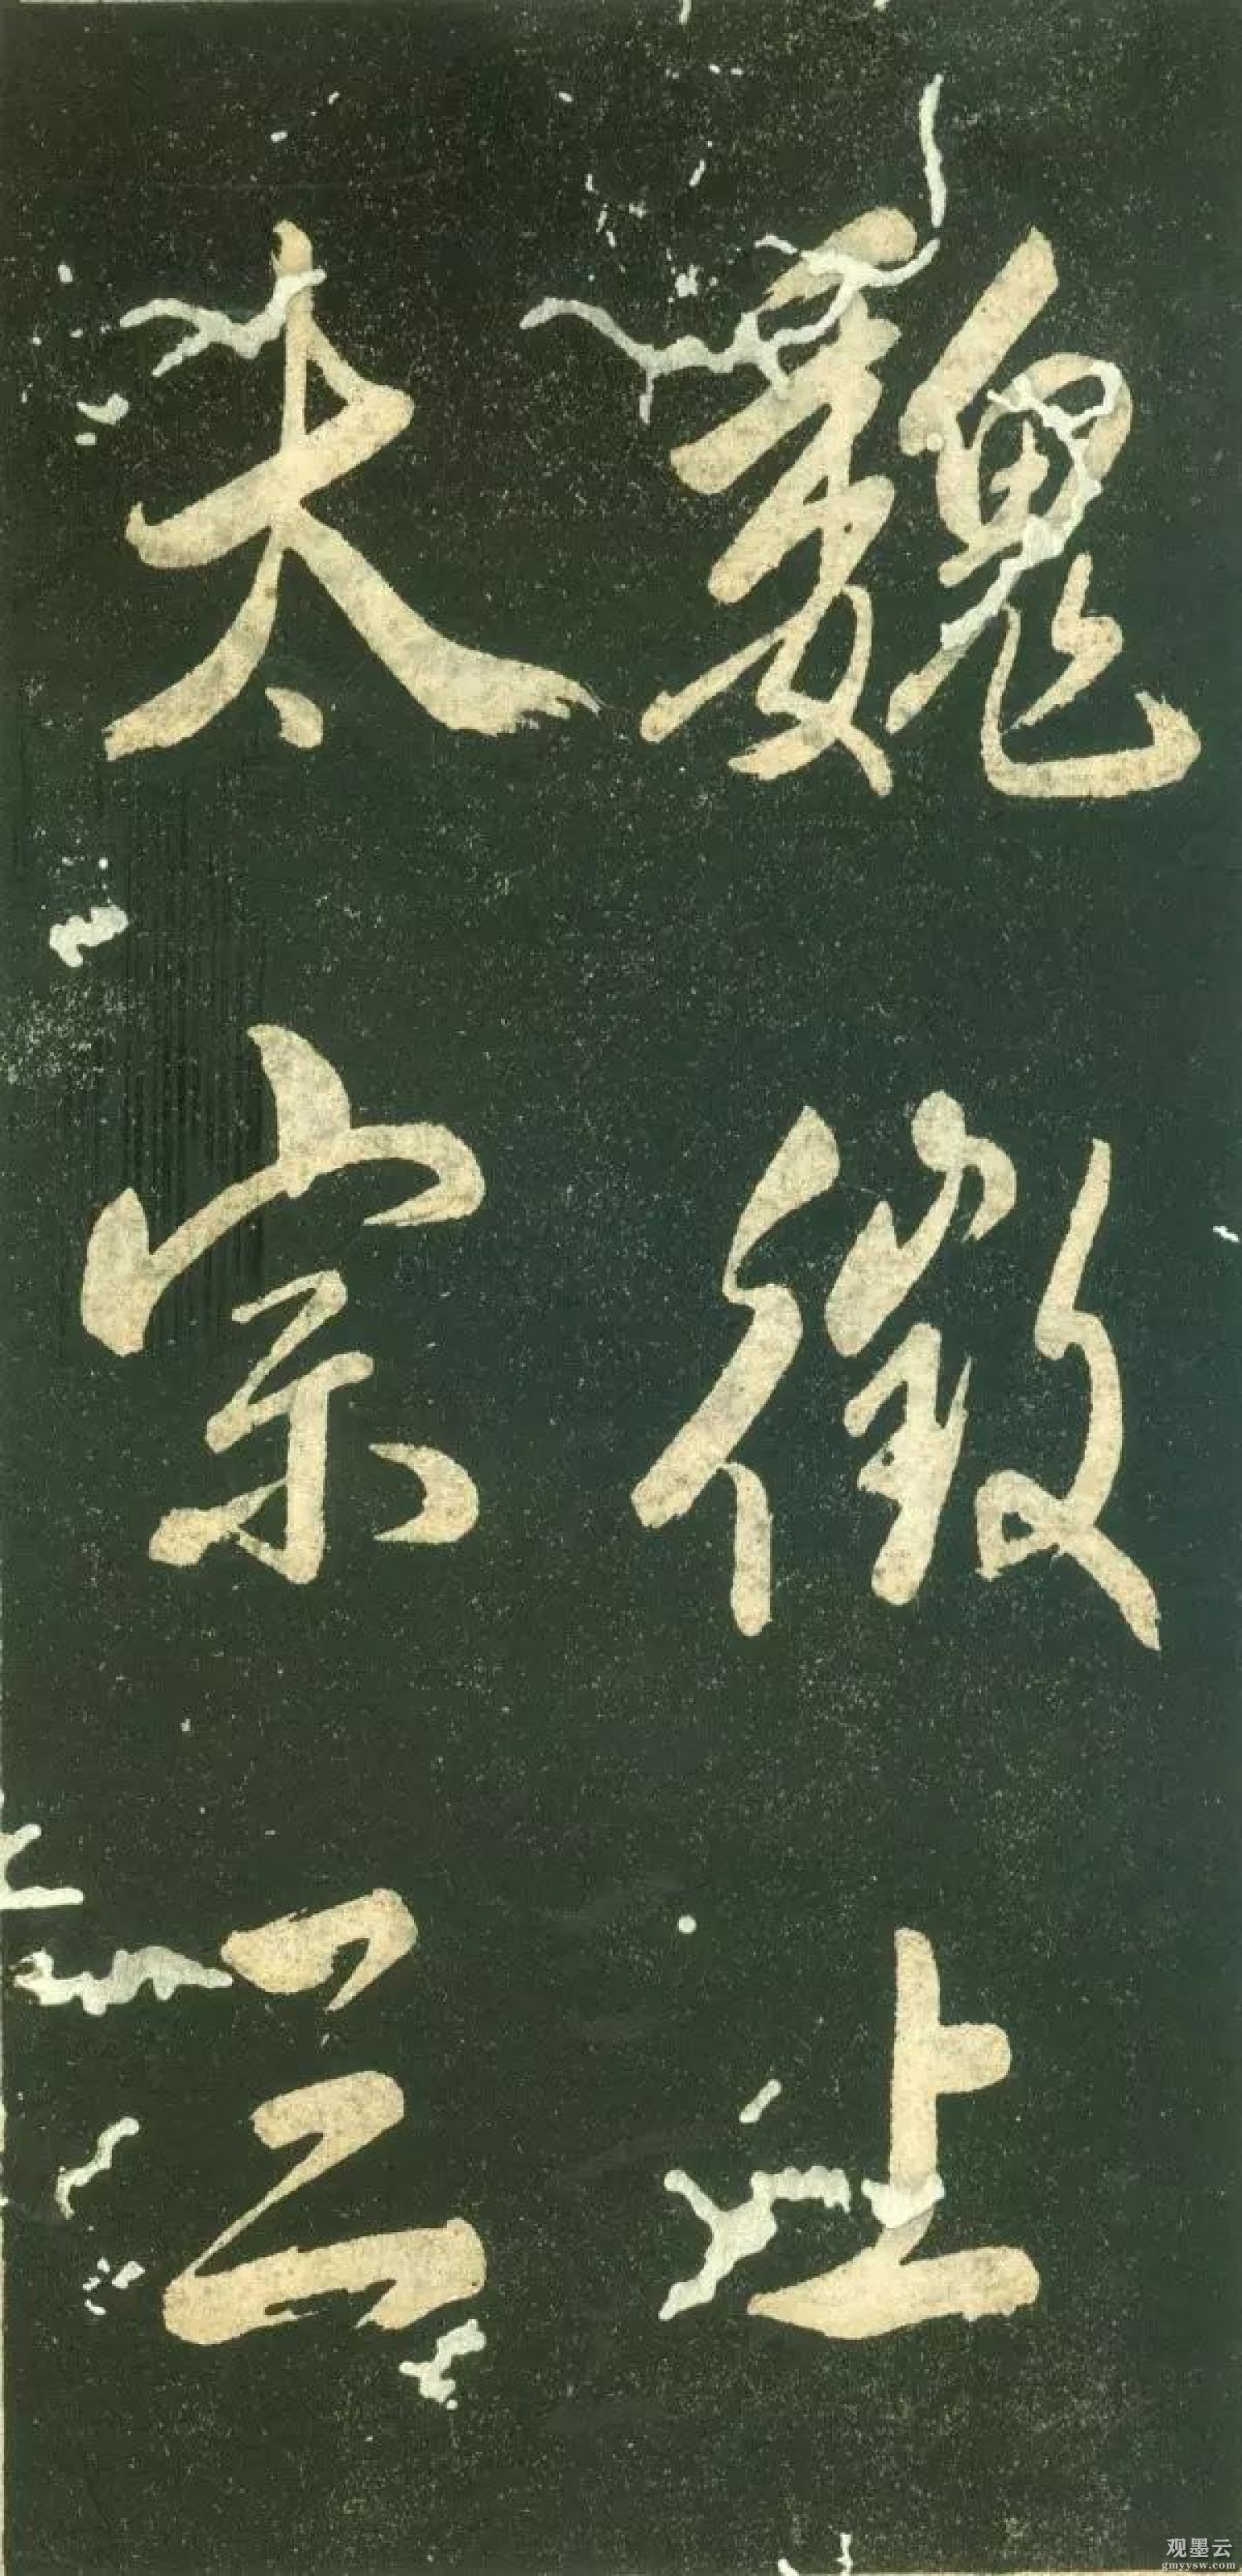 魏徵上
太宗三
观墨云
gmyysw.com